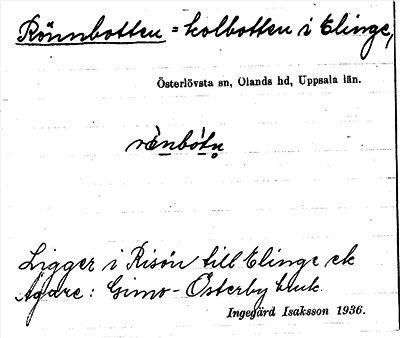 Rönnbotten = kolbotten i Elinge,
Österlövsta sn, Olands hd, Uppsala län.
Ligger i Risön till Elinge ek
Ägare: Gimo-Österby bruk.
Ingegärd Isaksson 1936.